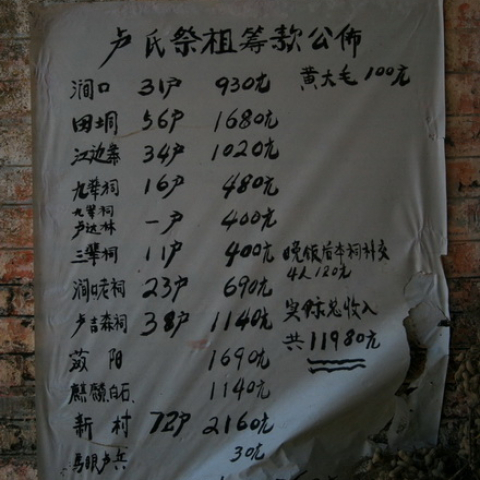 卢氏祭祖筹款公佈
涧口 31户 930元 黄大毛 100元
田垌 56户 1680元
江边寨 34户 1020元
九辈祠 16户 480元
九辈祠
卢达林 一户 400元
三辈祠 11户 400元 晚饭后本祠补交
4人120元
涧口老祠 23户 690元
实际总收入
卢吉森祠 38户 1140元
共11980元
阳 1690元
麒麟白石 1140元
新村 72户 2160元
马眼卢兵 30元